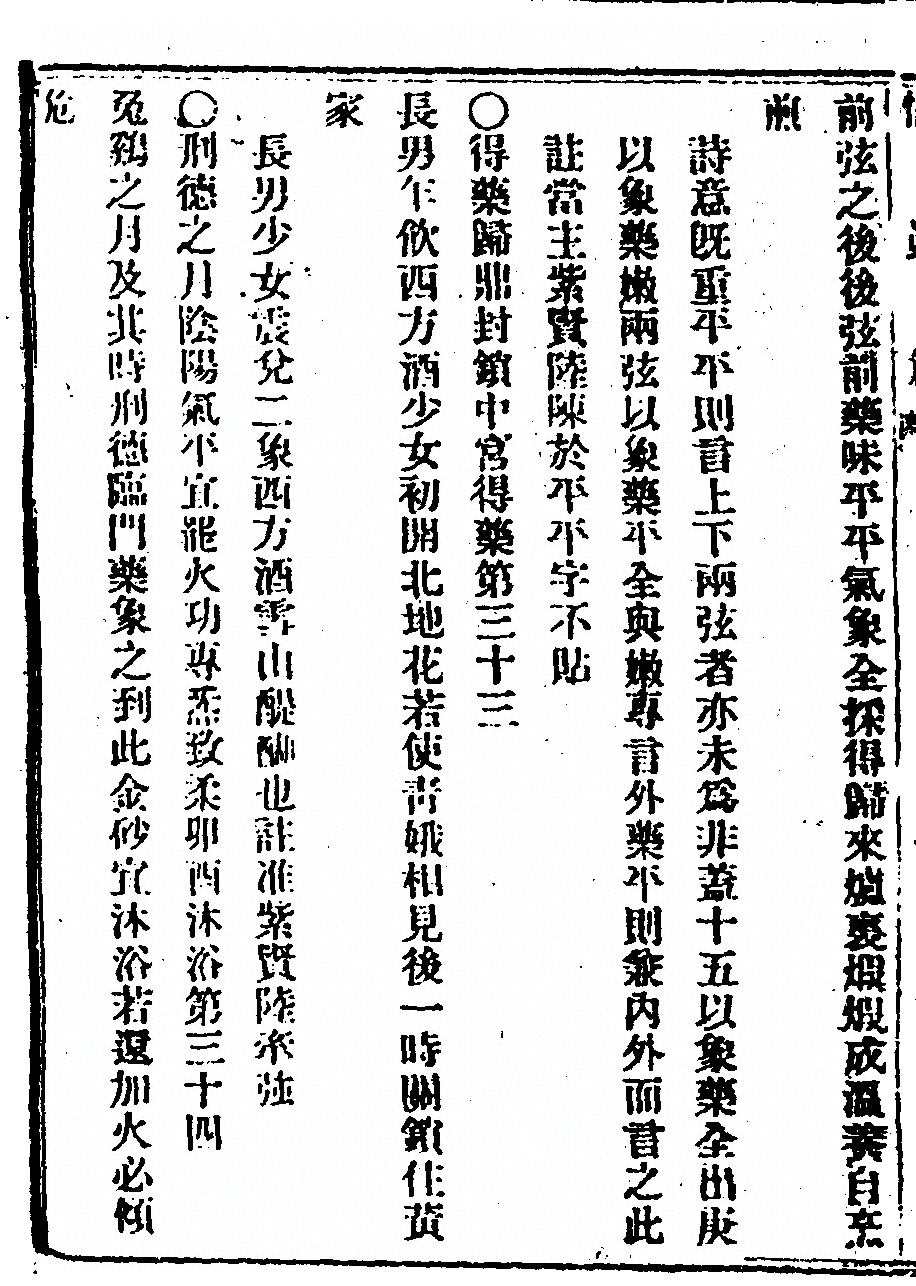 前弦之後後弦前藥味平平氣象全採得歸來爐裏煅煅成溫養自烹
煎
詩意旣重平平則言上下兩弦者亦未爲非蓋十五以象藥全出庚
以象藥嫩兩弦以象藥平全與嫩專言外藥平則兼內外而言之此
註當主紫賢陸陳於平平字不貼
○得藥歸鼎封鎖中宮得藥第三十三
長男乍飲西方酒少女初開北地花若使靑娥相見後一時關鎖住黃
家
長男少女震兌二象西方酒雪山醍醐也註准紫賢陸亦強
○刑德之月陰陽氣平宜罷火功專炁致柔卯酉沐浴第三十四
兔鷄之月及其時刑德臨門藥象之到此金砂宜沐浴若還加火必傾
危